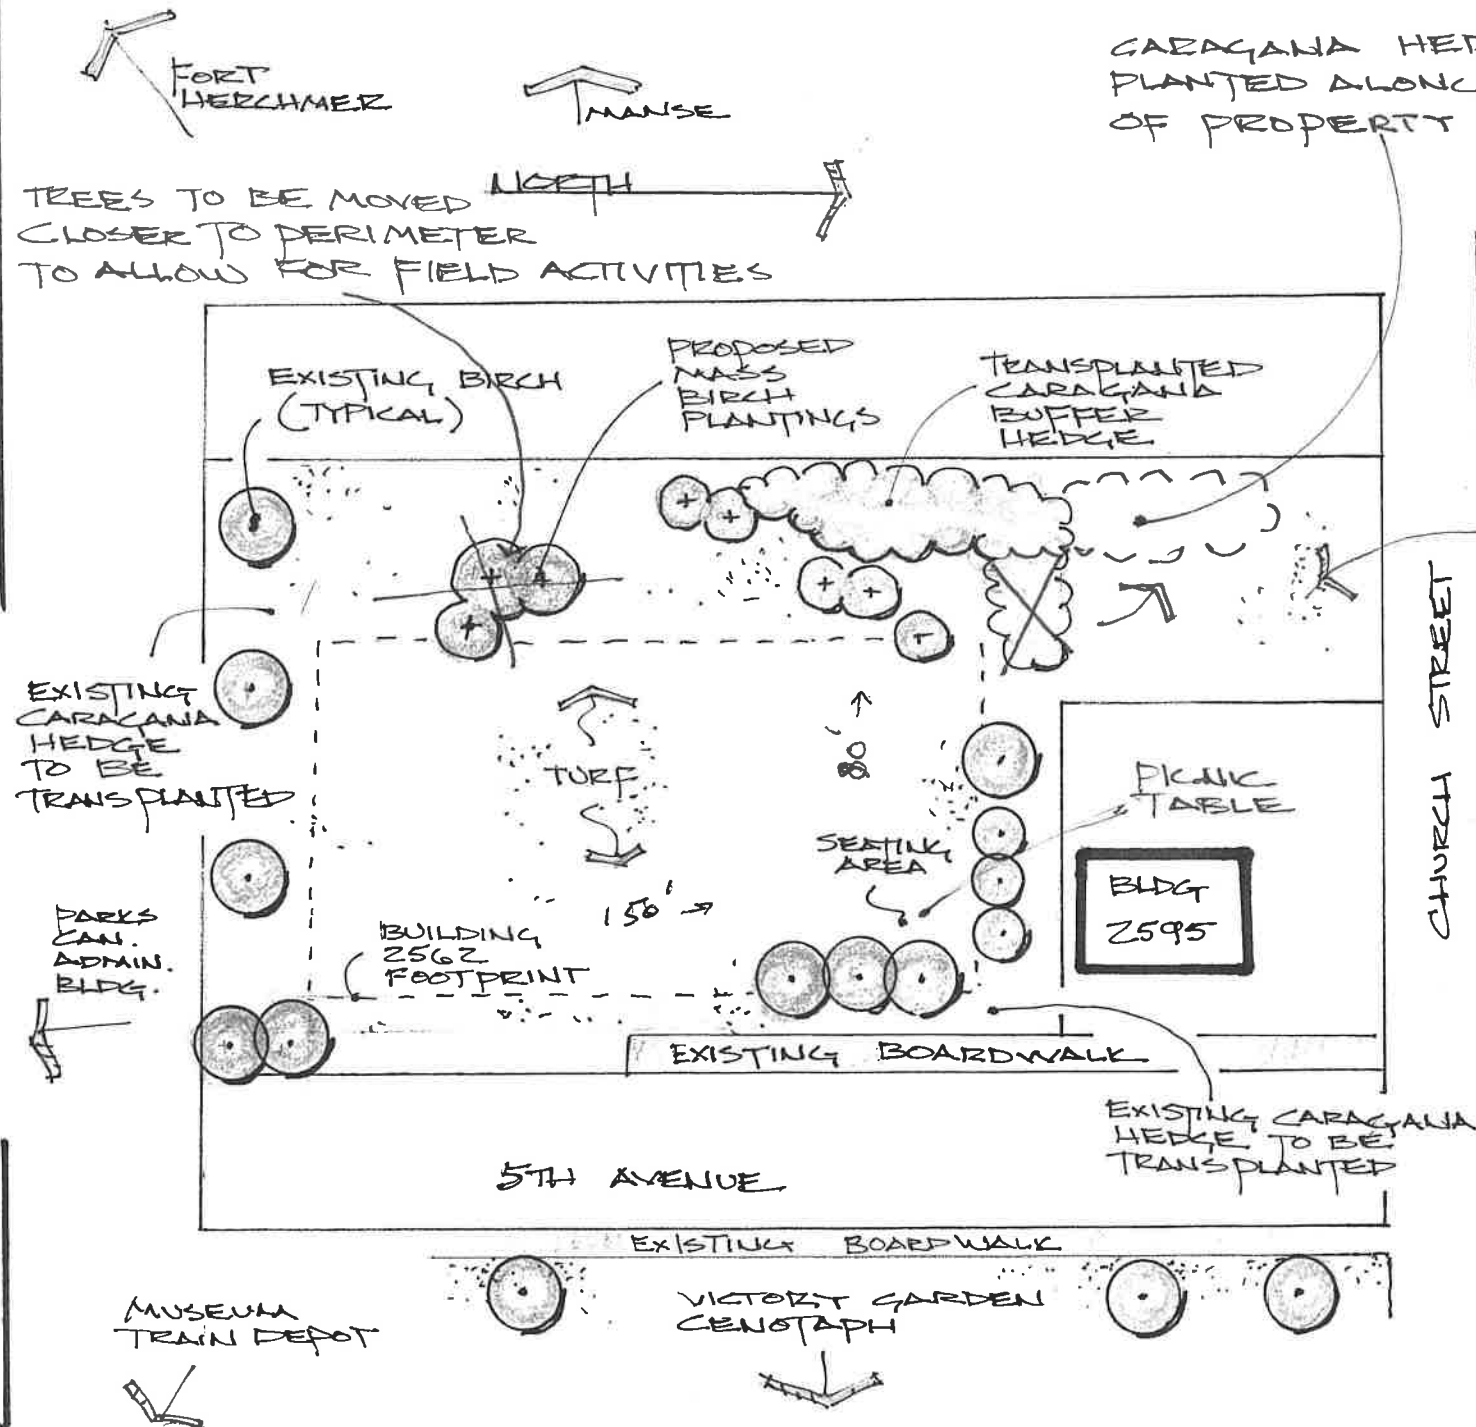 FORT
HERCHMER
MANSE
CARAGANA
PLANTED ALONG
OF PROPERTY
NORTH
TREES TO BE MOVED
CLOSER TO PERIMETER
TO ALLOW FOR FIELD ACTIVITIES
EXISTING BIRCH
(TYPICAL)
PROPOSED
MASS
BIRCH
PLANTINGS
TRANSPLANTED
CARAGANA
BUFFER
HEDGE
EXISTING
CARAGANA
HEDGE
TO BE
TRANSPLANTED
TURF
80'
150'
SEATING
AREA
PICNIC
TABLE
BLDG
2595
CHURCH STREET
PARKS
CAN.
ADMIN.
BLDG.
BUILDING
2562
FOOTPRINT
EXISTING BOARDWALK
EXISTING CARAGANA
HEDGE TO BE
TRANSPLANTED
5TH AVENUE
EXISTING BOARDWALK
MUSEUM
TRAIN DEPOT
VICTORY GARDEN
CENOTAPH